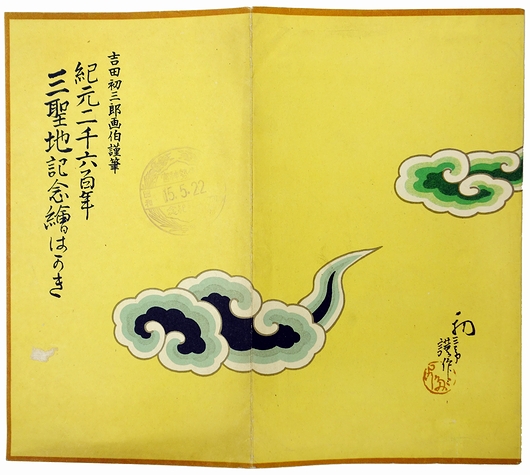 吉田初三郎画伯謹筆
紀元二千六百年
三聖地記念繪はがき
15.5.22
初三郎
謹作